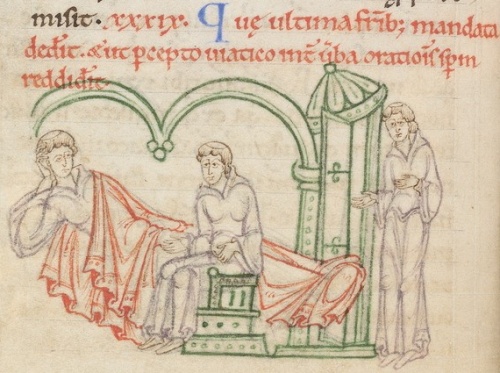 misit. xxxix. Que ultima frib; mandata
dedit. & ut pcepto uiatico int uba orationis spm
reddidit